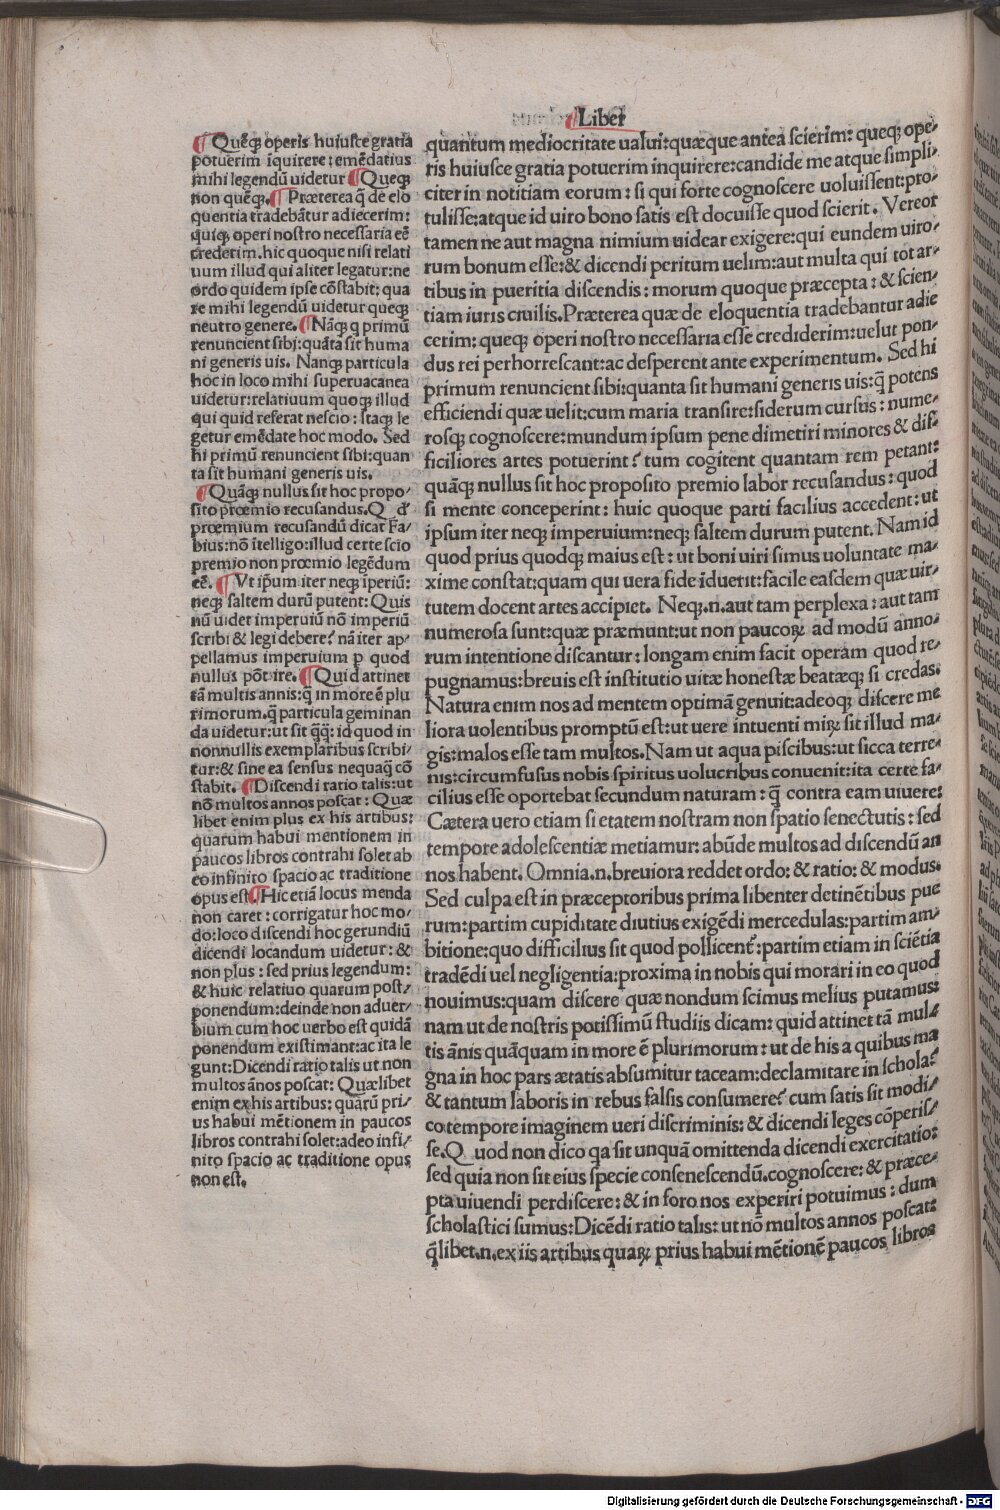 ¶Liber
¶Quēqꝫ operis huiusce gratia
potuerim īquirere: emēdatius
mihi legendū uidetur ¶Queqꝫ
non quēqꝫ. ¶Præterea q̄ de elo
quentia tradebātur adiecerim:
quiqꝫ operi nostro necessaria eē
crederim. hic quoque nisi relati
uum illud qui aliter legatur: ne
ordo quidem ipse cōstabit: qua
re mihi legendū uidetur queqꝫ
neutro genere. ¶Nāqꝫ q primū
renuncient sibi: quāta sit huma
ni generis uis. Nanqꝫ particula
hoc in loco mihi superuacanea
uidetur: relatiuum quoqꝫ illud
qui quid referat nescio: itaqꝫ le
getur emēdate hoc modo. Sed
hi primū renuncient sibi: quan
ta sit humani generis uis.
¶Quāqꝫ nullus sit hoc propo⸗
sito proemio recusandus. Q đ
proemium recusandū dicat Fa⸗
bius: nō ītelligo: illud certe scio
premio non proemio legēdum
eē. ¶Vt ip̄um iter neqꝫ īperiū:
neqꝫ saltem durū putent: Quis
nū uidet imperuiū nō imperiū
scribi & legi debere? nā iter ap⸗
pellamus imperuium p quod
nullus pōt ire. ¶Quid attinet
tā multis annis: q̄ in more ē plu
rimorum. q̄ particula geminan
da uidetur: ut sit q̄q̄: id quod in
nonnullis exemplaribus scribi⸗
tur: & sine ea sensus nequaq̄ cō
stabit. ¶Discendi ratio talis: ut
nō multos annos poscat: Quæ
libet enim plus ex his artibus:
quarum habui mentionem in
paucos libros contrahi solet ab
eo infinito spacio ac traditione
opus est ¶Hic etiā locus menda
non caret: corrigatur hoc mo⸗
do: loco discendi hoc gerundiū
dicendi locandum uidetur: &
non plus: sed prius legendum:
& huic relatiuo quarum post⸗
ponendum: deinde non aduer⸗
bium cum hoc uerbo est quidā
ponendum existimant: ac ita le
gunt: Dicendi ratio talis ut non
multos ānos poscat: Quælibet
enim ex his artibus: quārū pri⸗
us habui mētionem in paucos
libros contrahi solet: adeo infi⸗
nito spacio ac traditione opus
non est.
quantum mediocritate ualui: quæque antea scierim: queqꝫ ope⸗
ris huiusce gratia potuerim inquirere: candide me atque simpli⸗
citer in notitiam eorum: si qui forte cognoscere uoluissent: pro⸗
tulisse: atque id uiro bono satis est docuisse quod scierit. Vereor
tamen ne aut magna nimium uidear exigere: qui eundem uiro⸗
rum bonum esse: & dicendi peritum uelim: aut multa qui tot ar⸗
tibus in pueritia discendis: morum quoque præcepta: & scien⸗
tiam iuris ciuilis. Præterea quæ de eloquentia tradebantur adie
cerim: queqꝫ operi nostro necessaria esse crediderim: uelut pon⸗
dus rei perhorrescant: ac desperent ante experimentum. Sed hi
primum renuncient sibi: quanta sit humani generis uis: q̄ potens
efficiendi quæ uelit: cum maria transire: siderum cursus: nume⸗
rosqꝫ cognoscere: mundum ipsum pene dimetiri minores & dif⸗
ficiliores artes potuerint? tum cogitent quantam rem petant:
quāqꝫ nullus sit hoc proposito premio labor recusandus: quod
si mente conceperint: huic quoque parti facilius accedent: ut
ipsum iter neqꝫ imperuium: neqꝫ saltem durum putent. Nam id
quod prius quodqꝫ maius est: ut boni uiri simus uoluntate ma⸗
xime constat: quam qui uera fide īduerit: facile easdem quæ uir⸗
tutem docent artes accipiet. Neqꝫ.n. aut tam perplexa: aut tam
numerosa sunt: quæ præmunt: ut non paucoꝝ ad modū anno⸗
rum intentione discantur: longam enim facit operam quod re⸗
pugnamus: breuis est institutio uitæ honestæ beatæqꝫ si credas.
Natura enim nos ad mentem optimā genuit: adeoqꝫ discere me
liora uolentibus promptū est: ut uere intuenti miꝝ sit illud ma⸗
gis: malos esse tam multos. Nam ut aqua piscibus: ut sicca terre⸗
nis: circumfusus nobis spiritus uolucribus conuenit: ita certe fa⸗
cilius esse oportebat secundum naturam: q̄ contra eam uiuere:
Cætera uero etiam si etatem nostram non spatio senectutis: sed
tempore adolescentiæ metiamur: abūde multos ad discendū an
nos habent. Omnia.n. breuiora reddet ordo: & ratio: & modus.
Sed culpa est in præceptoribus prima libenter detinētibus pue
rum: partim cupiditate diutius exigēdi mercedulas: partim am⸗
bitione: quo difficilius sit quod pollicent᷑: partim etiam in sciētia
tradēdi uel negligentia: proxima in nobis qui morari in eo quod
nouimus: quam discere quæ nondum scimus melius putamus:
nam ut de nostris potissimū studiis dicam: quid attinet tā mul⸗
tis ānis quāquam in more ē plurimorum: ut de his a quibus ma
gna in hoc pars ætatis absumitur taceam: declamitare in schola?
& tantum laboris in rebus falsis consumere? cum satis sit modi⸗
co tempore imaginem ueri discriminis: & dicendi leges cōperis⸗
se. Q uod non dico qa sit unquā omittenda dicendi exercitatio:
sed quia non sit eius specie consenescendū. cognoscere: & præce⸗
pta uiuendi perdiscere: & in foro nos experiri potuimus: dum
scholastici sumus: Dicēdi ratio talis: ut nō multos annos poscat:
q̄libet.n. ex iis artibus quaꝝ prius habui mētionē paucos libros
Digitalisierung gefördert durch die Deutsche Forschungsgemeinschaft - DFG